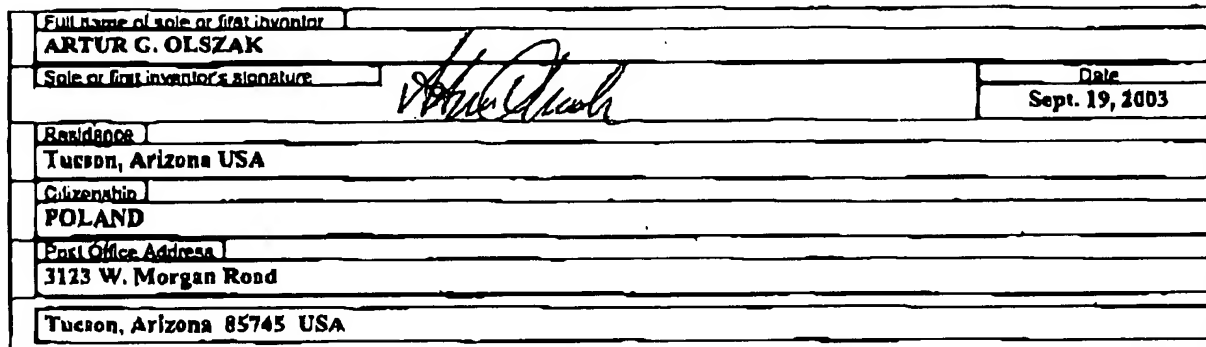 Full name of sole or first inventor
ARTUR G. OLSZAK
Sole or first inventor's signature
Date
Sept. 19, 2003
Residence
Tucson, Arizona USA
Citizenship
POLAND
Post Office Address
3123 W. Morgan Road
Tucson, Arizona 85745 USA